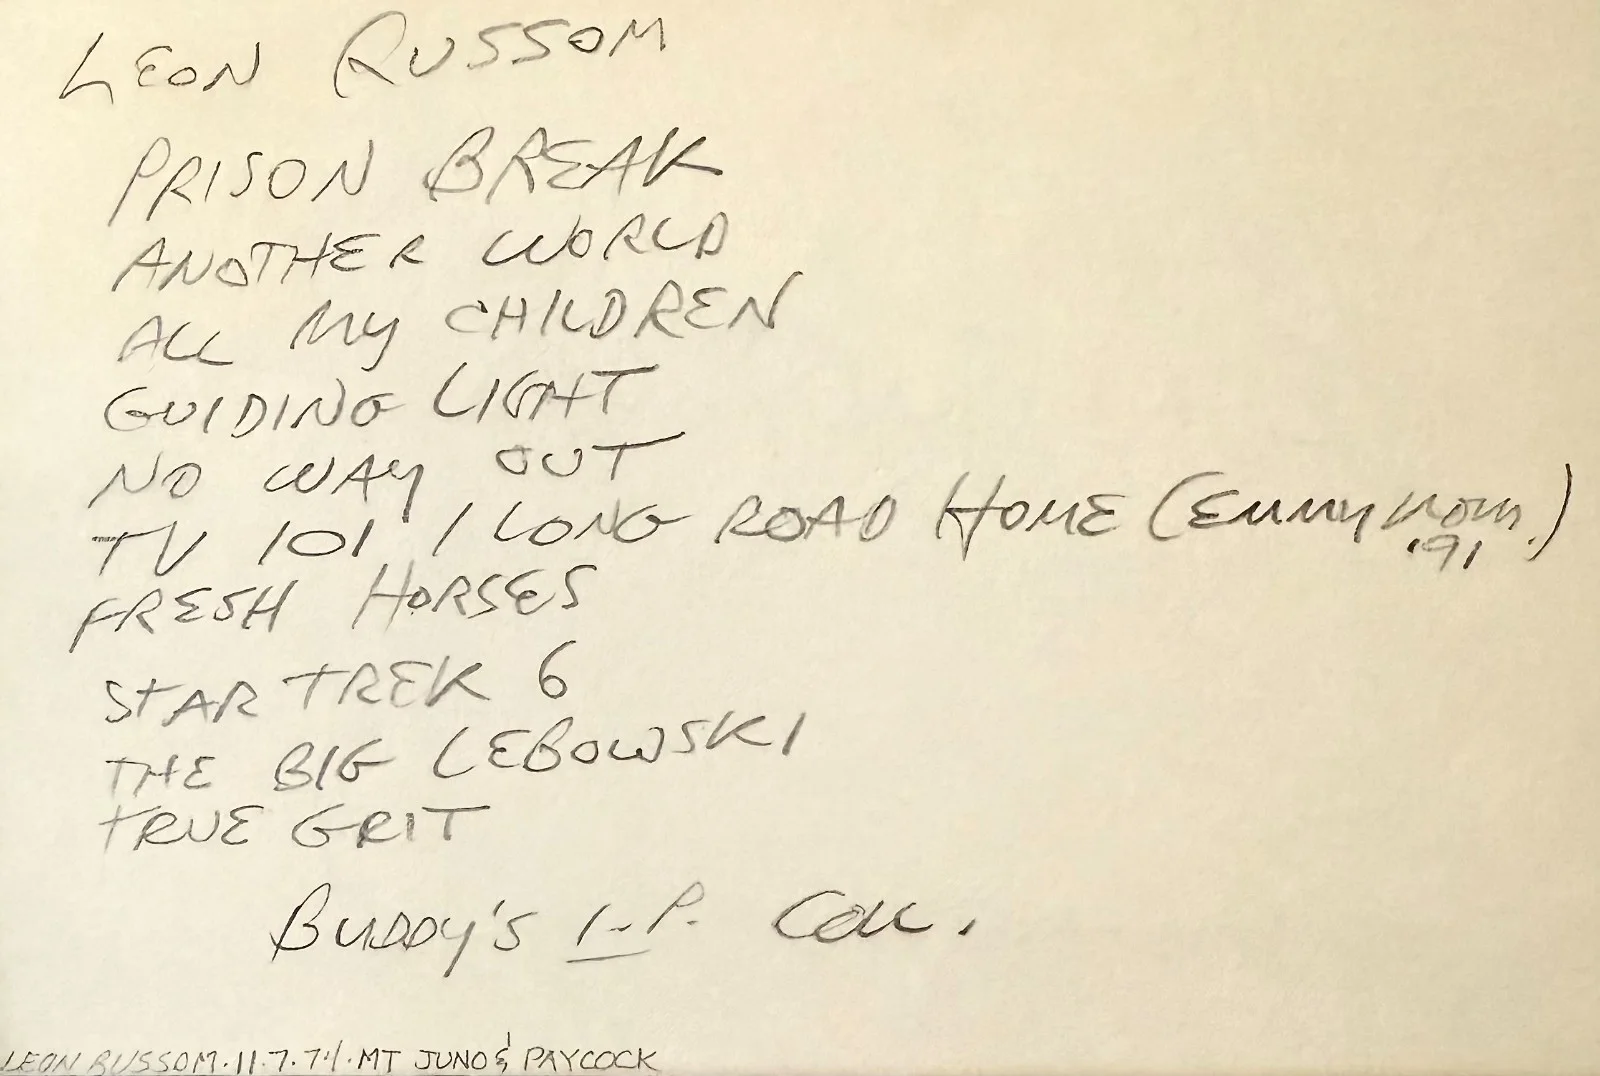 LEON RUSSOM
PRISON BREAK
ANOTHER WORLD
ALL MY CHILDREN
GUIDING LIGHT
NO WAY OUT
TV 101 / LONG ROAD HOME (EMMY NOM. '91)
FRESH HORSES
STAR TREK 6
THE BIG LEBOWSKI
TRUE GRIT
BUDDY'S I.P. COLL.
LEON RUSSOM.11.7.74.MT JUNO & PAYCOCK